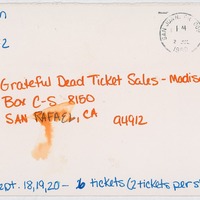 n
2
SAN
PM
Grateful Dead Ticket Sales - Madiso
Box C-S 8150
SAN RAFAEL, CA
94912
ept. 18,19,20 - 6 tickets (2 tickets per s